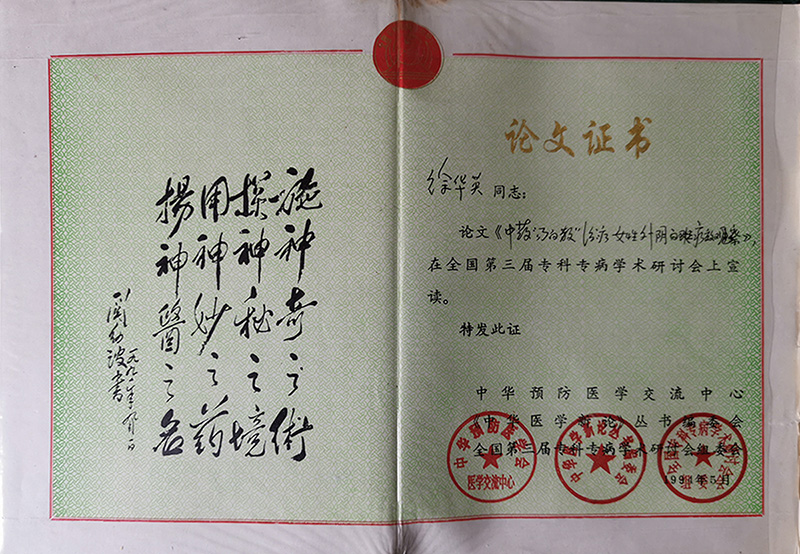 施神奇之術
探神秘之境
用神妙之药
揚神醫之名
關幼波書
论文证书
徐华英 同志:
论文《中药“白散”治疗女性外阴白斑疗效观察》,
在全国第三届专科专病学术研讨会上宣
读。
特发此证
中华预防医学交流中心
《中华医学新论》丛书编委会
全国第三届专科专病学术研讨会组委会
中华预防医学会
医学交流中心
中华医学新论丛书编委会